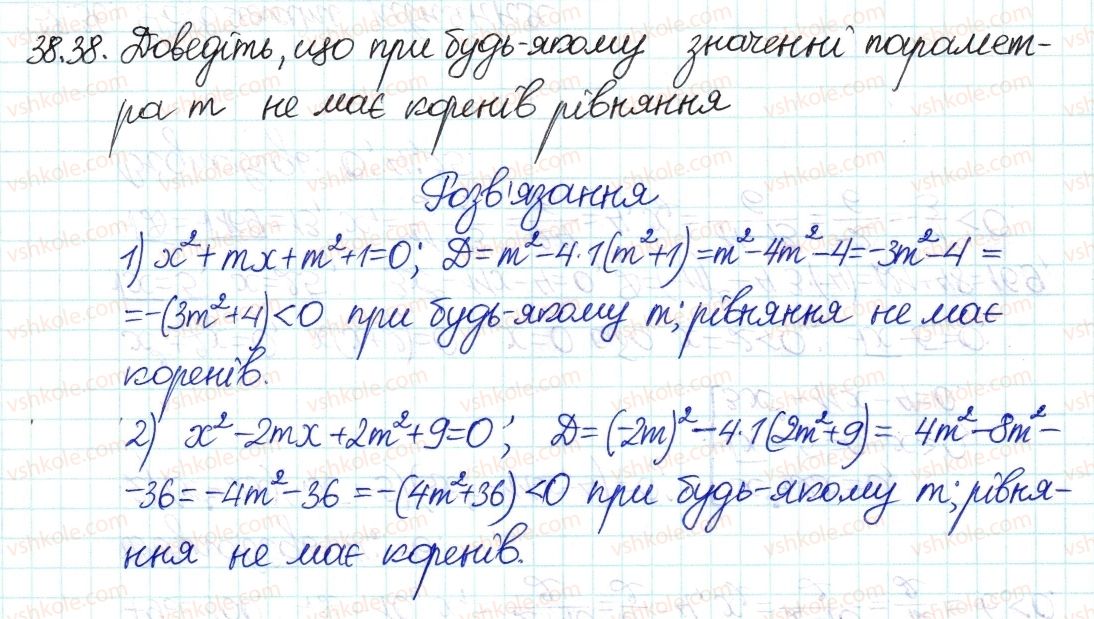 38.38. Доведіть, що при будь-якому значенні парамет-
ра m не має коренів рівняння
Розв'язання
1) x²+mx+m²+1=0; D=m²-4·1(m²+1)=m²-4m²-4=-3m²-4=
=-(3m²+4)<0 при будь-якому m; рівняння не має
коренів.
2) x²-2mx+2m²+9=0; D=(-2m)²-4·1(2m²+9)= 4m²-8m²-
-36=-4m²-36=-(4m²+36)<0 при будь-якому m; рівня-
ння не має коренів.